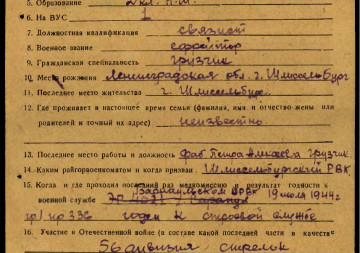 5. Образование 2 кл. Н.Ш.
6. На ВУС 1
7. Должностная квалификация связист
8. Военное звание ефрейтор
9. Гражданская специальность грузчик
10. Место рождения Ленинградская обл. г. Шлиссельбург
11. Последнее место жительства г. Шлиссельбург.
12. Где проживает в настоящее время семья (фамилия, имя и отчество жены или
родителей и точный их адрес) неизвестно
13. Последнее место работы и должность фаб Петра Алексеева грузчик
14. Каким райгорвоенкоматом и когда призван Шлиссельбургский РВК
15. Когда и где проходил последний раз медкомиссию и результат годности к
военной службе 19 июля 1944 г
336 годен к строевой службе
16. Участие в Отечественной войне (в составе какой последней части и в качестве
56 дивизия стрелк